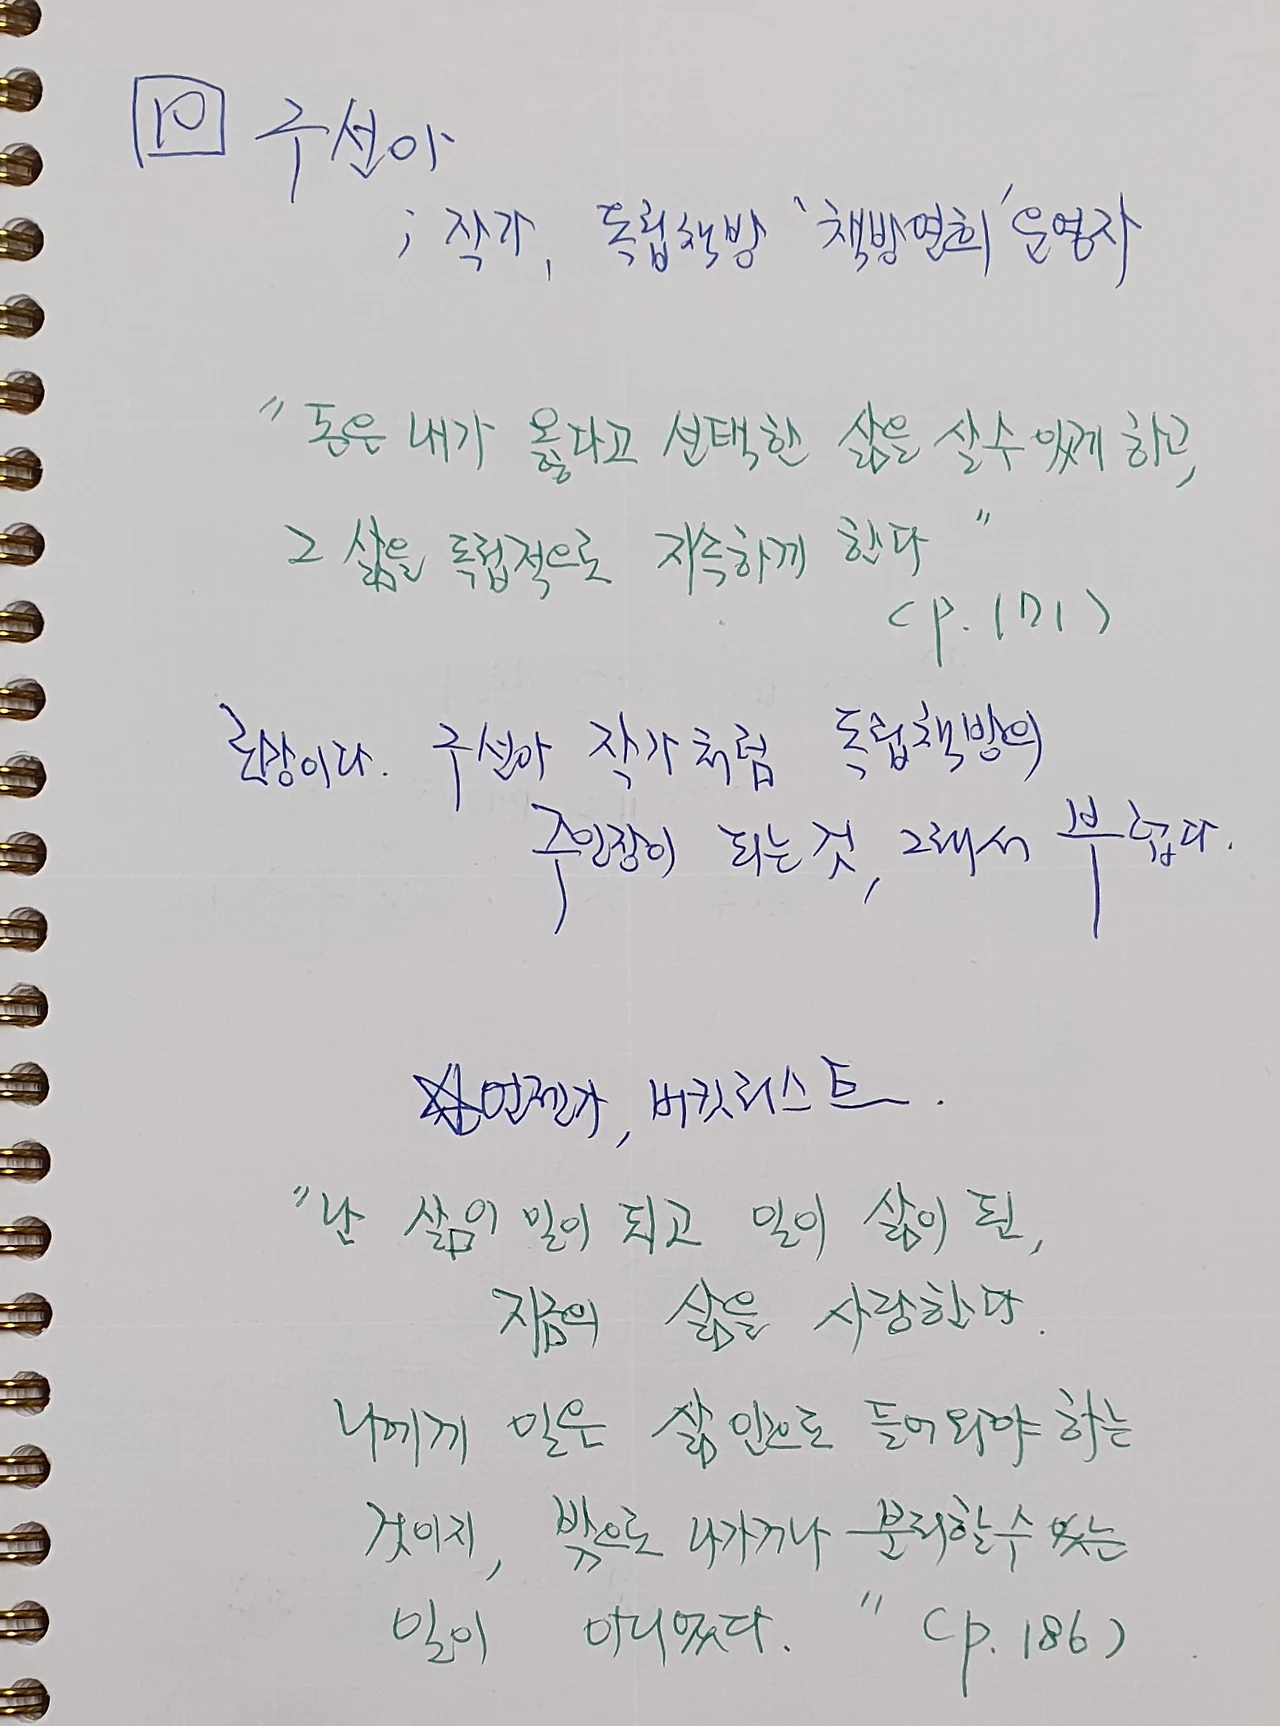 10 구선아
; 작가, 독립책방 '책방연희' 운영자
"돈은 내가 옳다고 선택한 삶을 살 수 있게 하고,
그 삶을 독립적으로 지속하게 한다"
(p.171)
로망이다. 구선아 작가처럼 독립책방의
주인장이 되는 것, 그래서 부럽다.
언젠가, 버킷리스트.
"난 삶이 일이 되고 일이 삶이 된,
지금의 삶을 사랑한다.
나에게 일은 삶 안으로 들어와야 하는
것이지, 밖으로 나가거나 분리할 수 있는
일이 아니었다." (p.186)